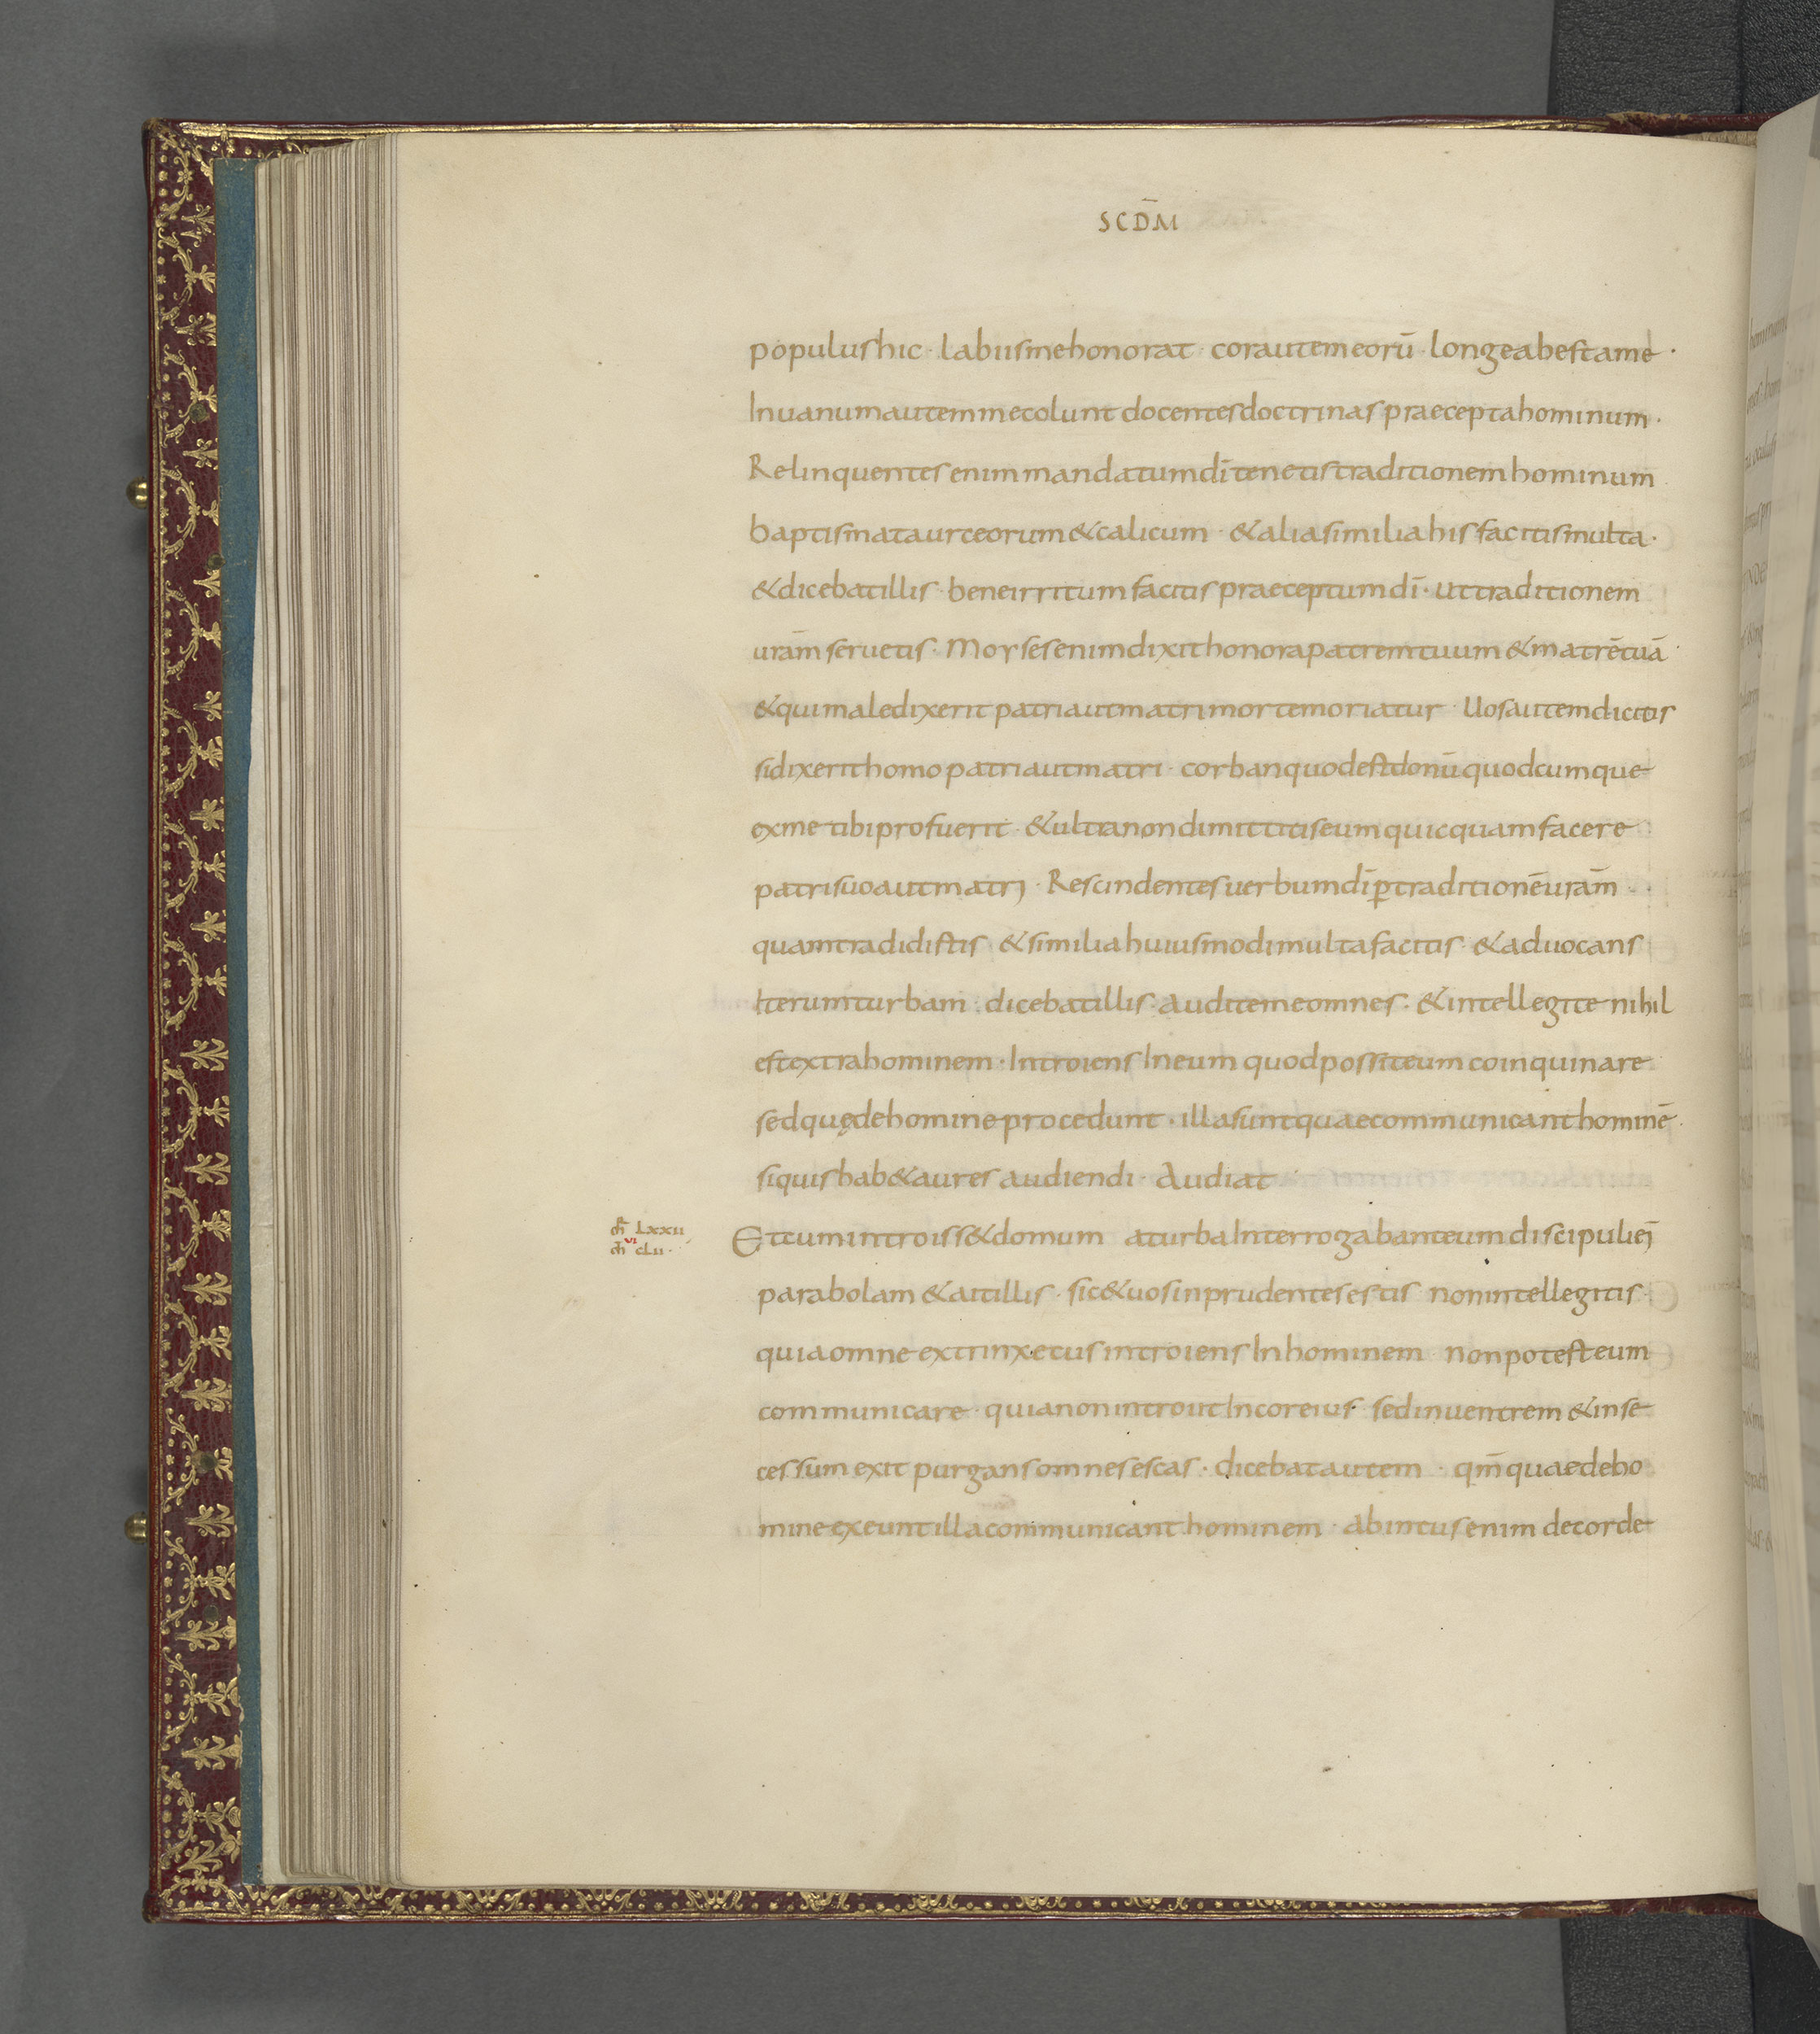 SCD̄M
populushic · labiismehonorat · corautemeorū · longeabestame ·
Inuanumautemmecolunt docentesdoctrinas praeceptahominum ·
Relinquentes enim mandatumdī tenetistraditionem hominum
baptismataurceorum &calicum · &aliasimiliahisfacitismulta ·
&dicebatillis · beneirritumfacitis praeceptumdī · uttraditionem
urām seruetis · Moysesenimdixithonorapatremtuum &matrētuā
&quimaledixerit patriautmatrimortemoriatur · Uosautemdicitis
sidixerithomo patriautmatri · corbanquodestdonū quodcumque
exme tibiprofuerit · &ultranondimittitiseum quicquamfacere
patrisuoautmatri · Rescindentesuerbumdī ꝑtraditionēurām ·
quamtradidistis · &similiahuiusmodimultafacitis · &aduocans
Iterumturbam · dicebatillis · auditemeomnes · &intellegite nihil
estextrahominem · Introiens Ineum quodpossiteum coinquinare
sedquędehomineprocedunt · illasuntquaecommunicanthominē ·
siquishab&aures audiendi · Audiat
m̄r̄ LXXII
Etcumintroiss&domum aturbaInterrogabanteum discipuliei
m̄t̄ CLII · VI
parabolam &aitillis · sic&uosinprudentesestis nonintellegitis ·
quiaomne extrinxetus introiens Inhominem nonpotesteum
communicare · quianonintroiit Incoreius · sedinuentrem &inse
cessum exit purgansomnesescas · dicebatautem · qm̄quaedeho
mineexeuntillacommunicant hominem · abintusenim decorde